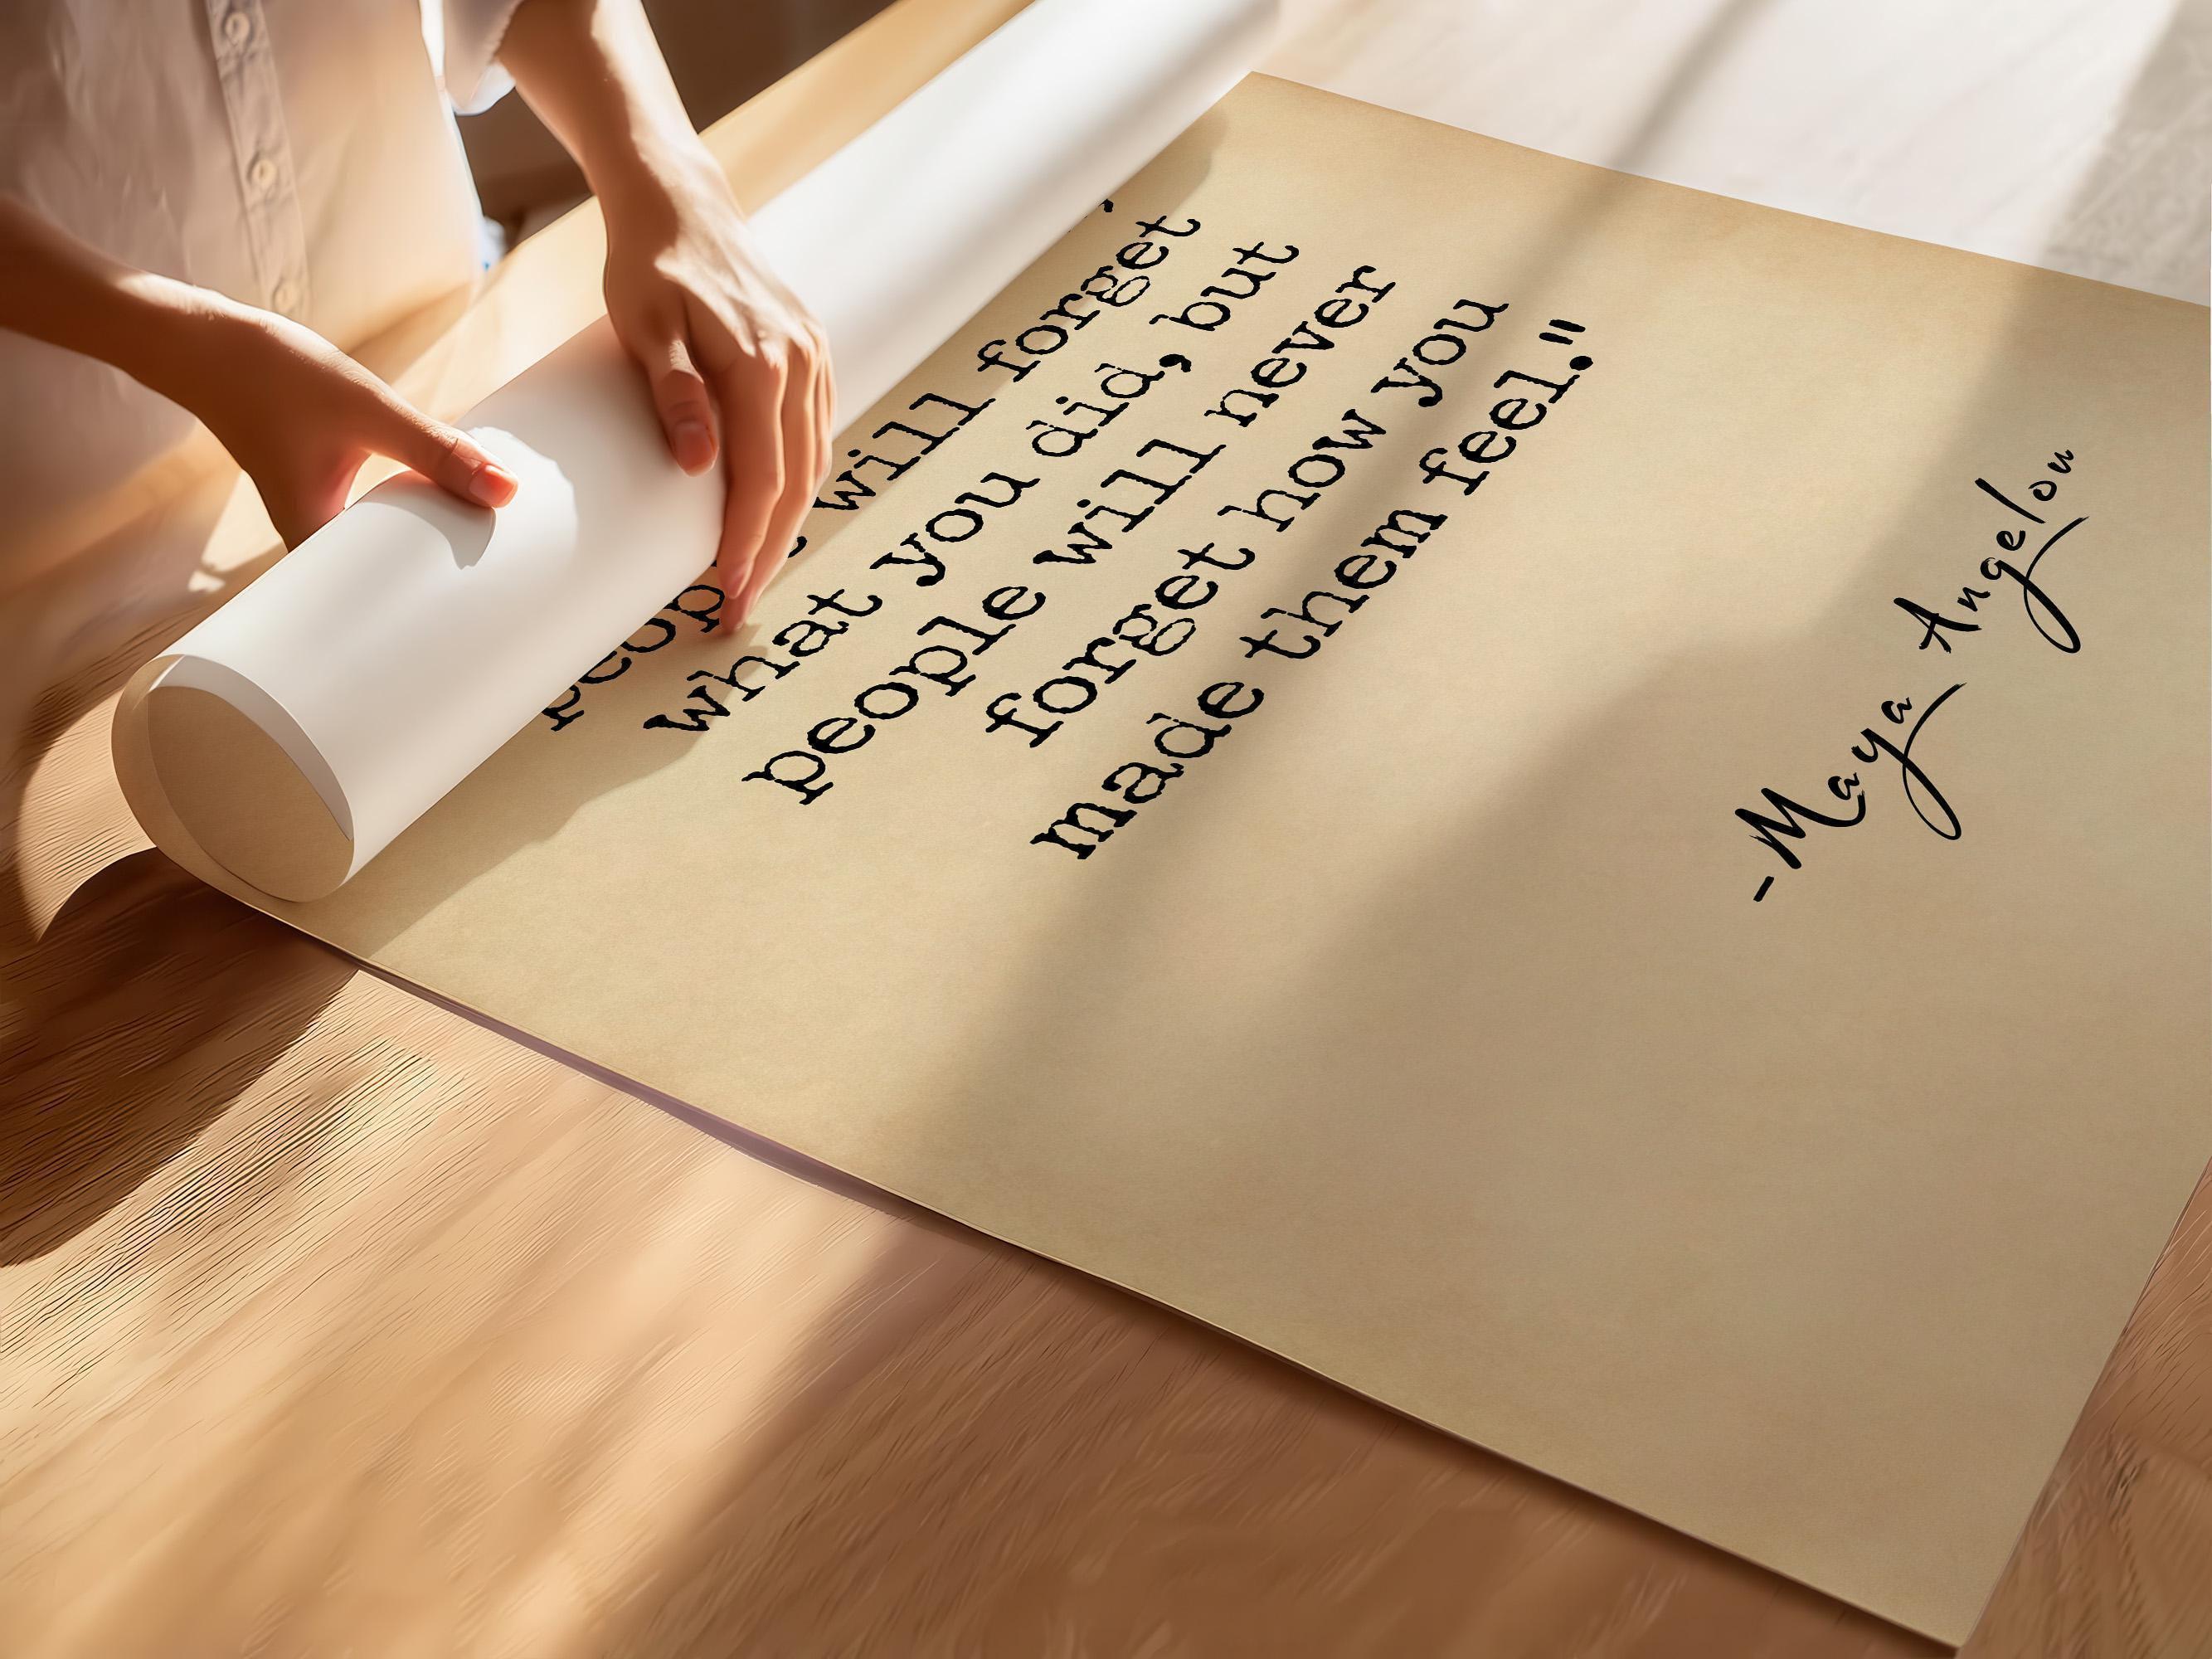 people will forget
what you did, but
people will never
forget how you
made them feel."
-Maya Angelou